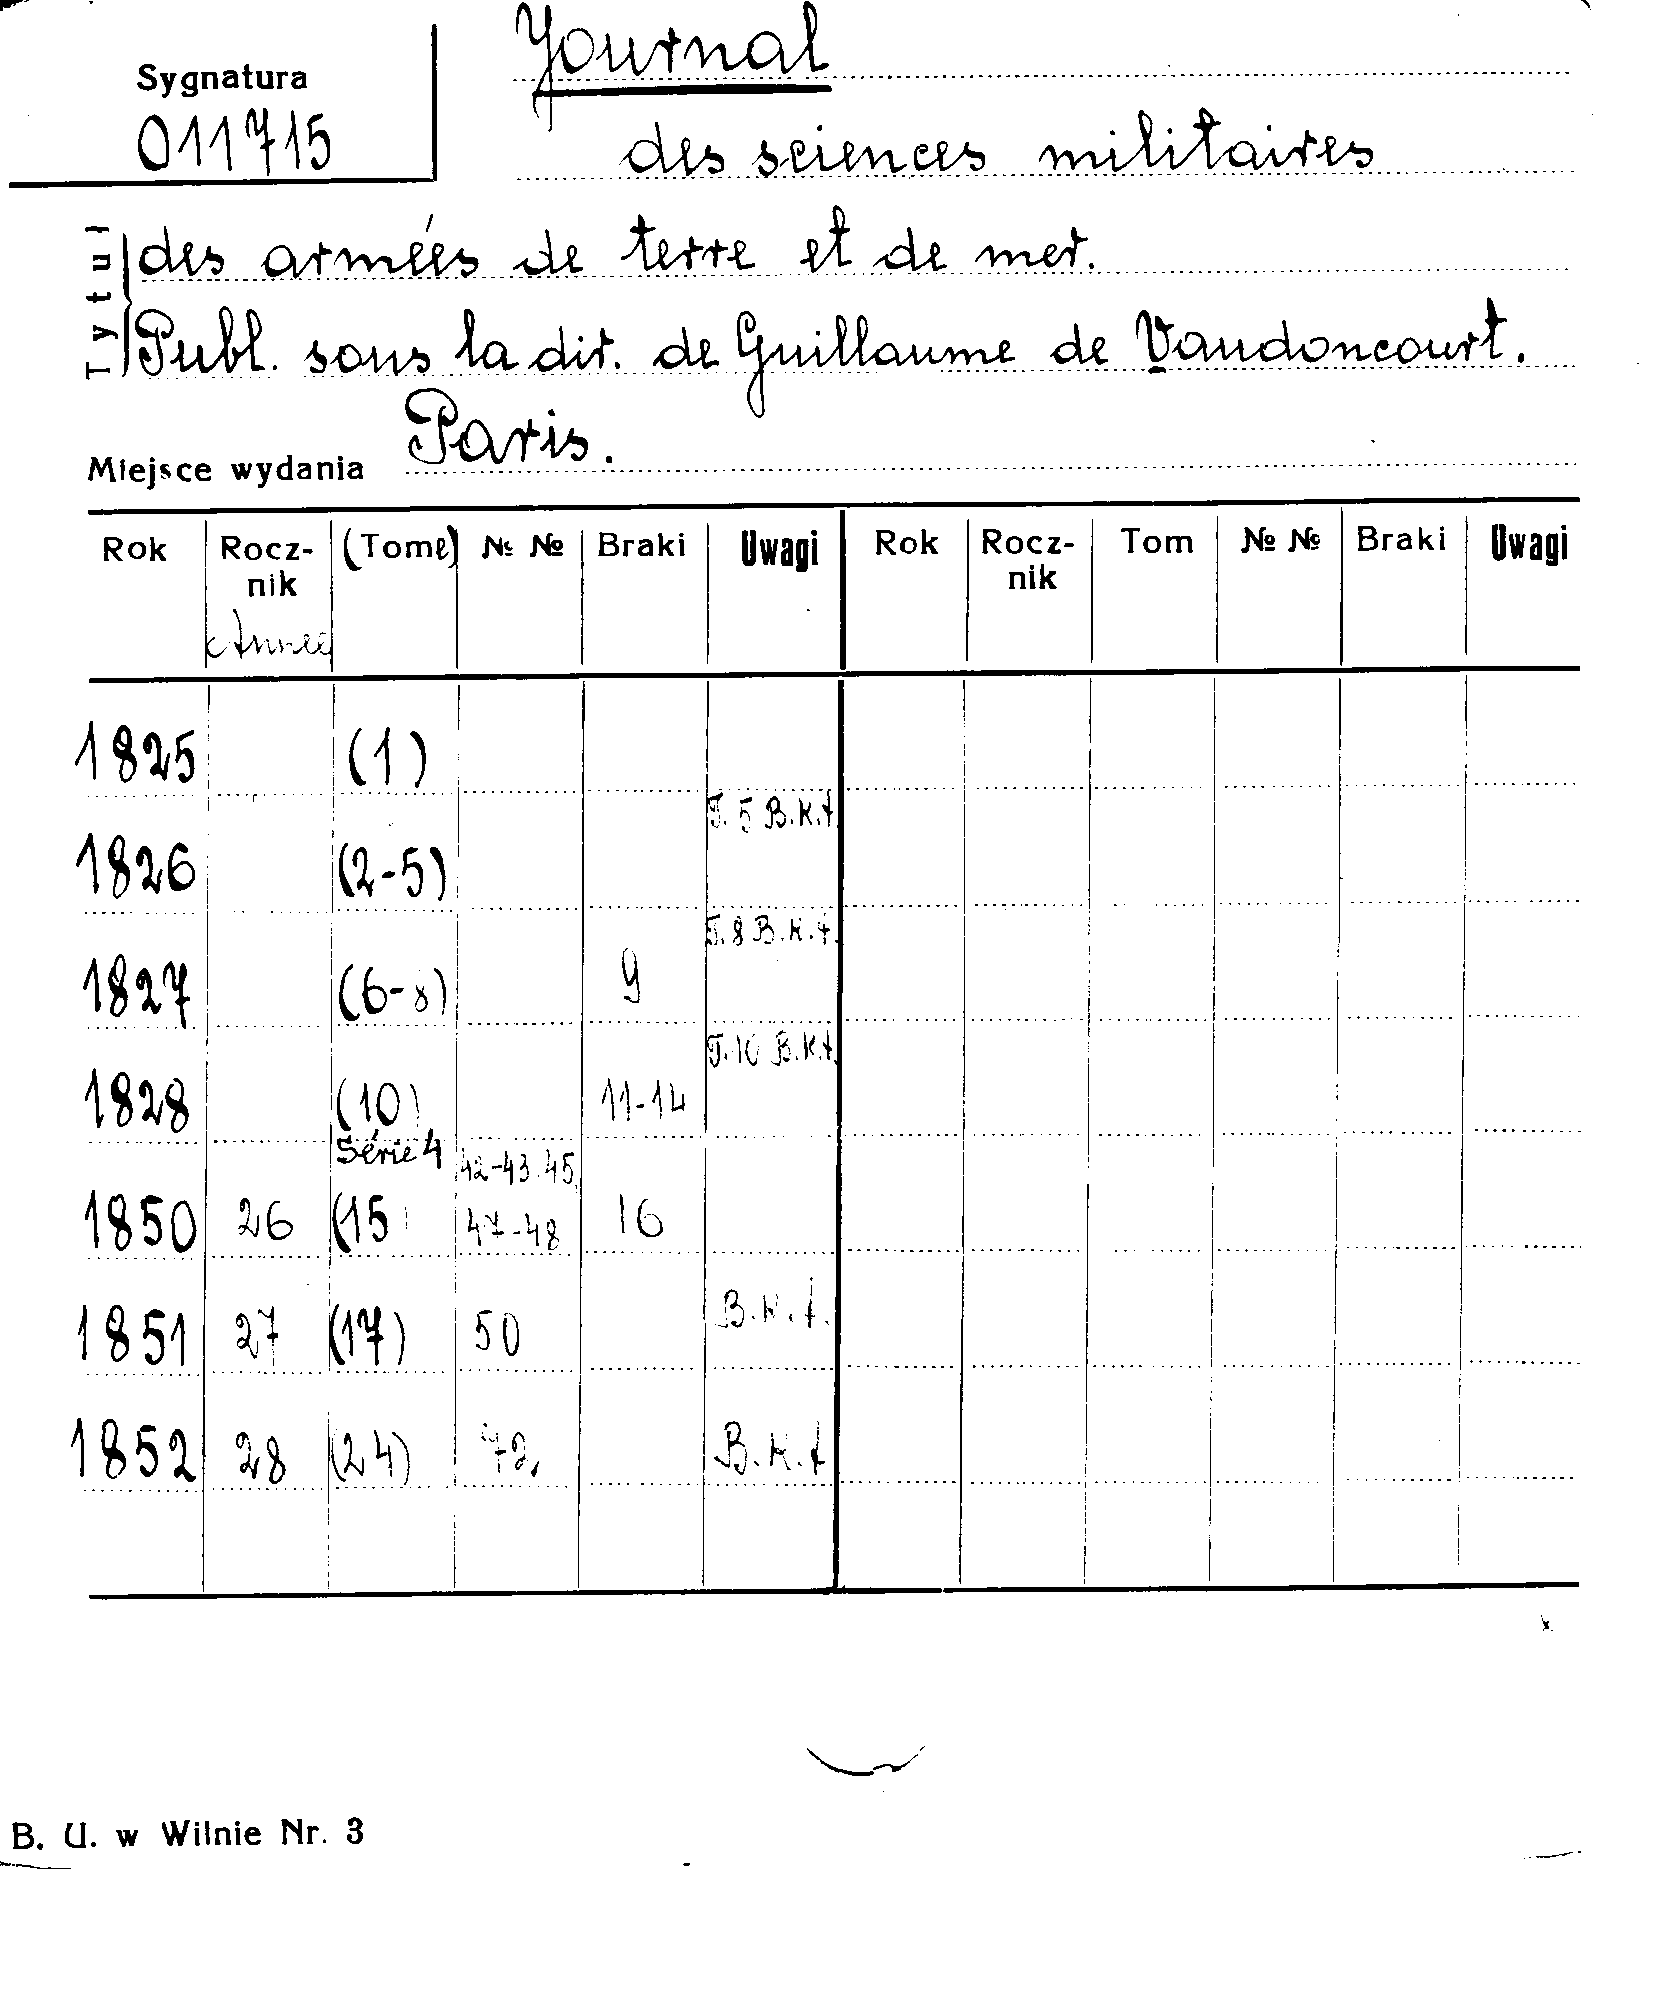 Journal
Sygnatura
011715
des sciences militaires
Tytuł
des armées de terre et de mer.
Publ. sous la dir. de Guillaume de Vaudoncourt.
Paris.
Miejsce wydania
Rok Rocz- (Tome) № № Braki Uwagi Rok Rocz- Tom № № Braki Uwagi
nik nik
Année
1825 (1)
T. 5 B.K.t.
1826 (2-5)
T. 8 B.K.t.
1827 (6-8) 9
T. 10 B.K.t.
1828 (10) 11-14
Série 4 42-43.45,
1850 26 (15) 47-48 16
1851 27 (17) 50 B.K.t.
1852 28 (24) 72, B.K.t
B. U. w Wilnie Nr. 3